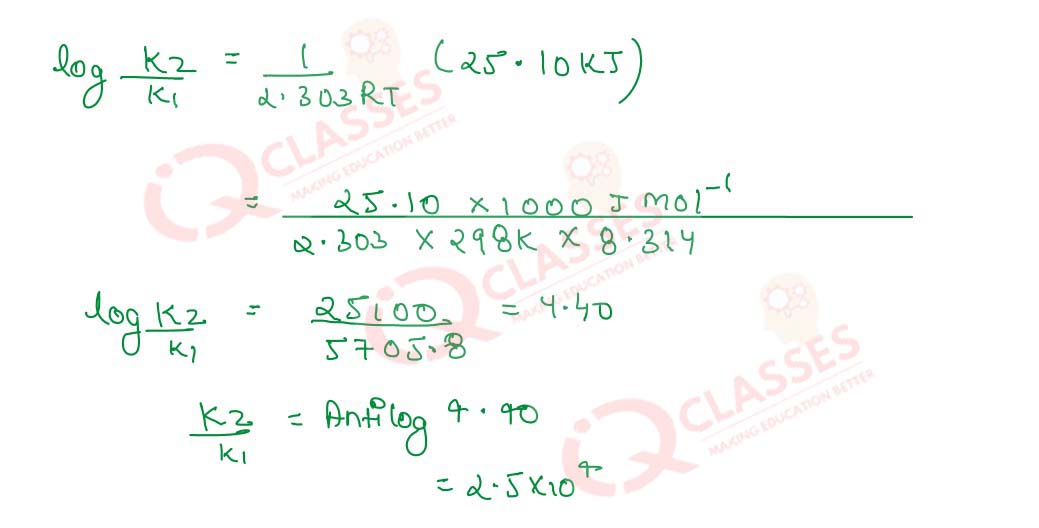 log K2/K1 = 1/2.303RT (25.10KJ)
= 25.10 x1000 J mol⁻¹ / 2.303 x 298K x 8.314
log K2/K1 = 25100/5705.8 = 4.40
K2/K1 = Antilog 4.40
= 2.5x10⁴
iQ CLASSES
MAKING EDUCATION BETTER
iQ CLASSES
MAKING EDUCATION BETTER
iQ CLASSES
MAKING EDUCATION BETTER